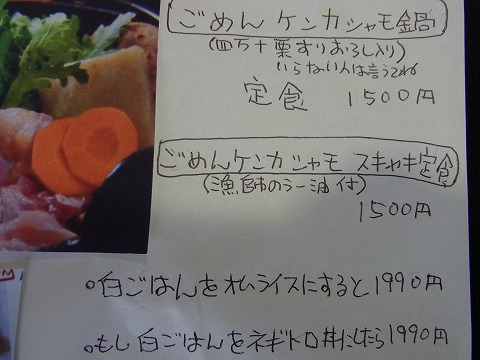 ごめんケンカシャモ鍋
(四万十栗すりおろし入り)
いらない人は言うてね
定食 1500円
ごめんケンカシャモ スキヤキ定食
(漁師のラー油付)
1500円
○白ごはんをオムライスにすると1990円
○もし白ごはんをネギトロ丼にしたら1990円